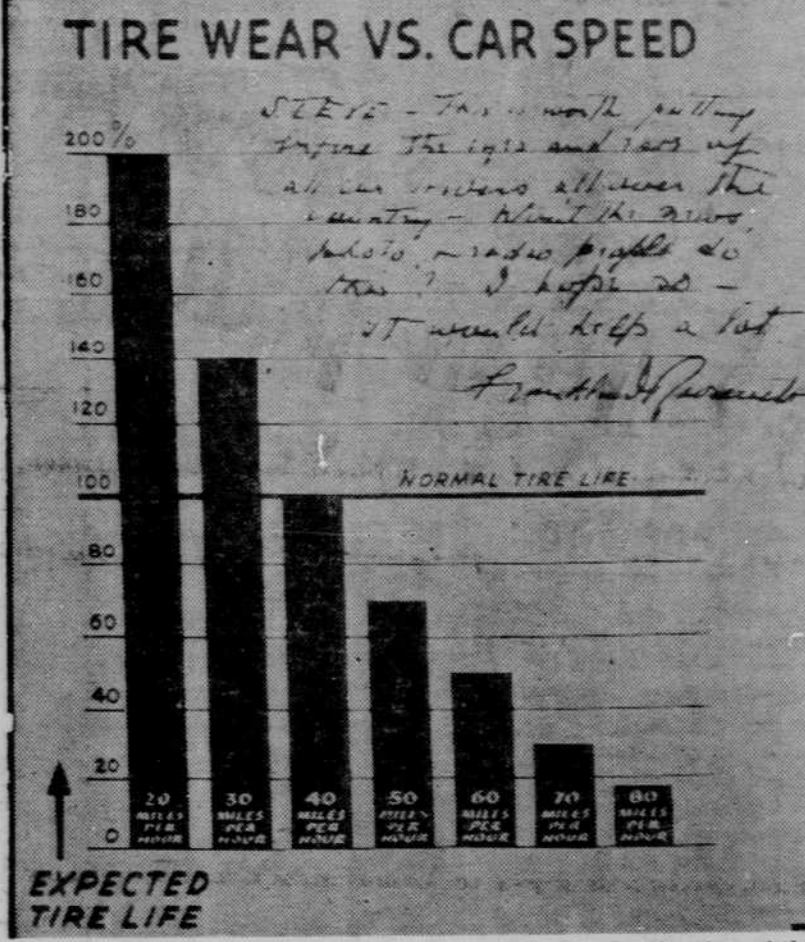 TIRE WEAR VS. CAR SPEED
STEVE - This is worth putting
before the eyes and ears of
all car drivers all over the
country - Won't the news,
photo, radio people do
this? I hope so -
it would help a lot
Franklin D Roosevelt
200%
180
160
140
120
100
NORMAL TIRE LIFE
80
60
40
20
0
20 MILES PER HOUR
30 MILES PER HOUR
40 MILES PER HOUR
50 MILES PER HOUR
60 MILES PER HOUR
70 MILES PER HOUR
80 MILES PER HOUR
EXPECTED
TIRE LIFE